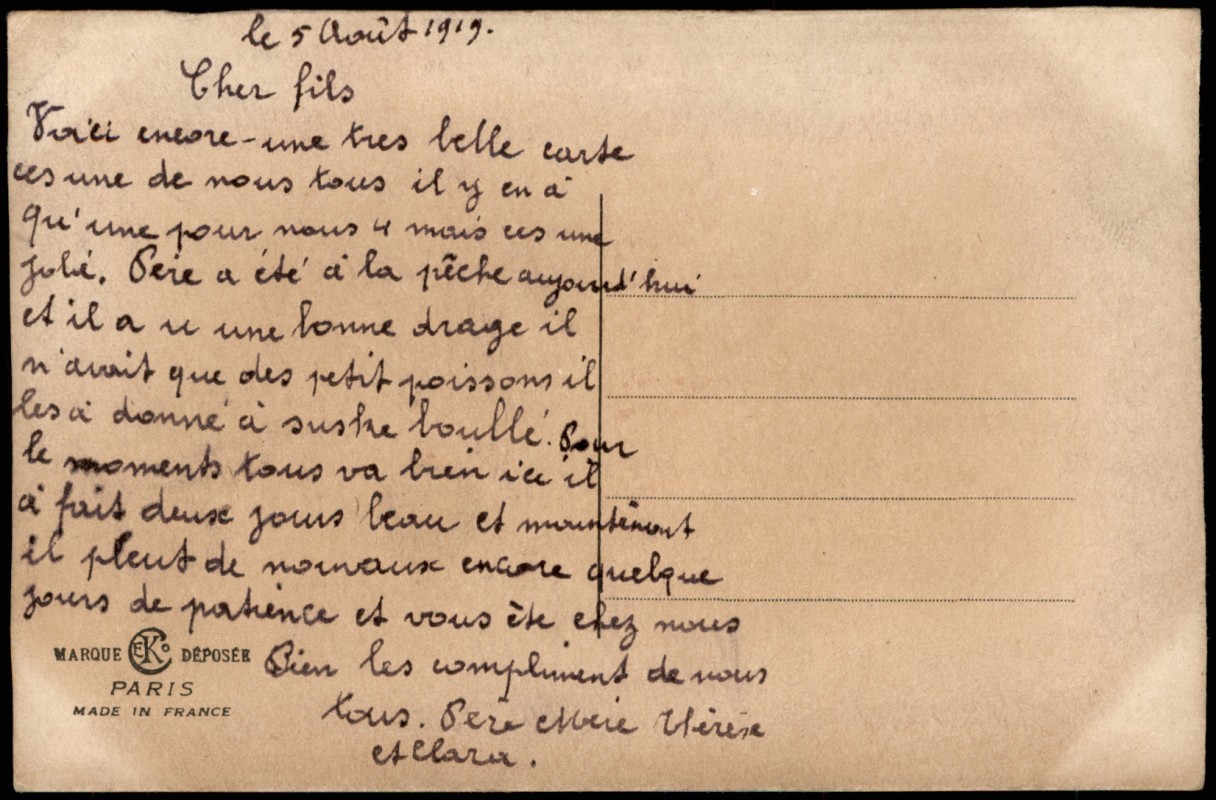 le 5 Août 1919.
Cher fils
Voici encore-une tres belle carte
ces une de nous tous il y en à
qu'une pour nous 4 mais ces une
jolié. Père a été à la pêche aujourd'hui
et il a u une bonne drage il
n'avait que des petit poissons il
les à donné à suske boullé. Pour
le moments tous va bien ici il
à fait deux jours beau et maintenant
il pleut de nouvaux encore quelque
jours de patience et vous ête chez nous
Bien les compliment de nous
tous. Père Mère Thérèse
et Clara.
MARQUE EKC DÉPOSÉE
PARIS
MADE IN FRANCE